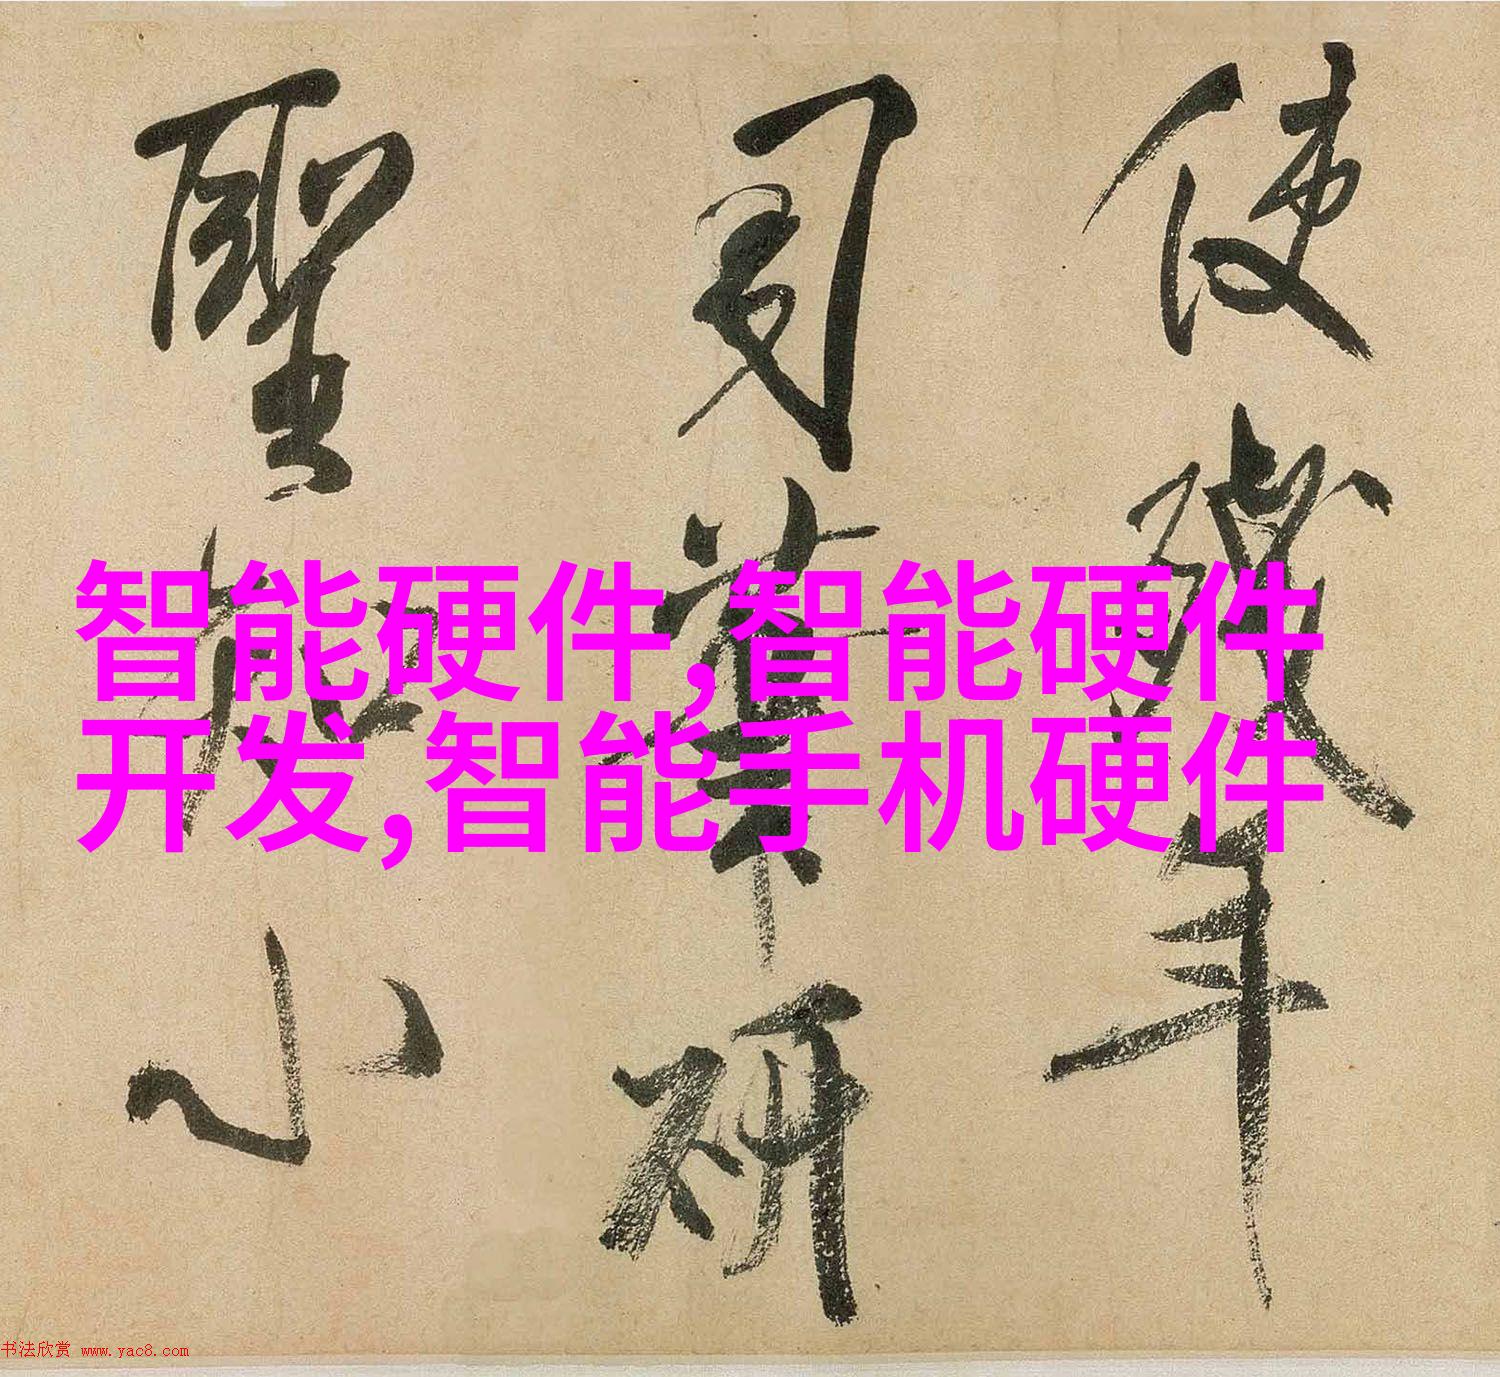 使殘年
研
聖知小
智能硬件,智能硬件
开发,智能手机硬件
书法欣赏 www.yac8.com